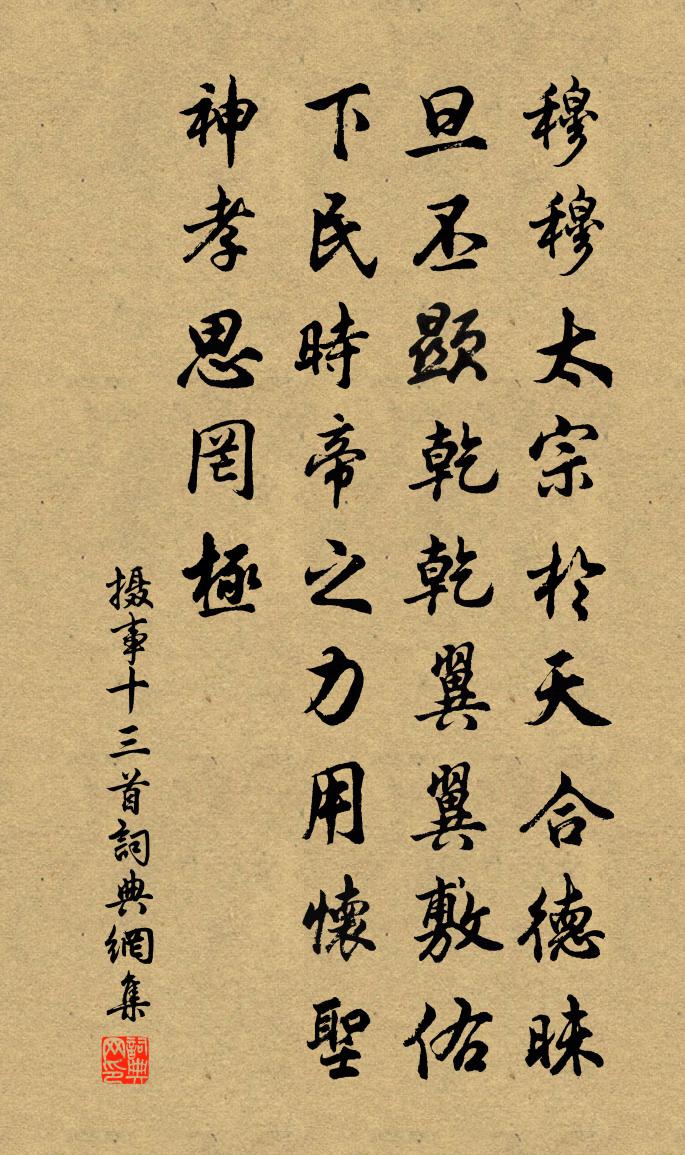 穆穆太宗於天合德昧
旦丕顯乾乾翼翼敷佑
下民時帝之力用懷聖
神孝思罔極
摄事十三首詞典網集
詞典网印